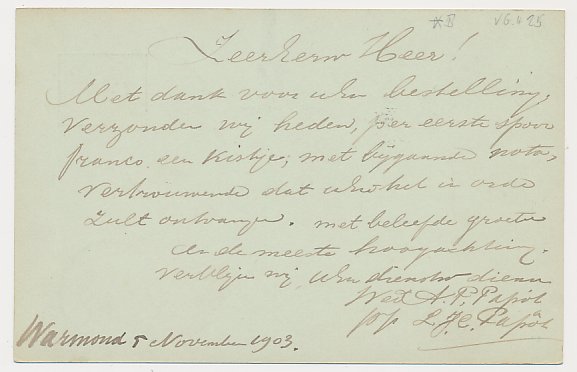 VG.4 25
Zeerherw Heer!
Met dank voor uw bestelling,
verzonden wij heden, per eerste spoor
franco een Kistje, met bijgaande nota,
Vertrouwende dat u het in orde
Zult ontvangen. met beleefde groeten
en de meeste hoogachting.
Verblijf wij, uw dienstw dienaar
Wed A. P. Papôt
pp L. J. C. Papôt
Warmond 5 November 1903.